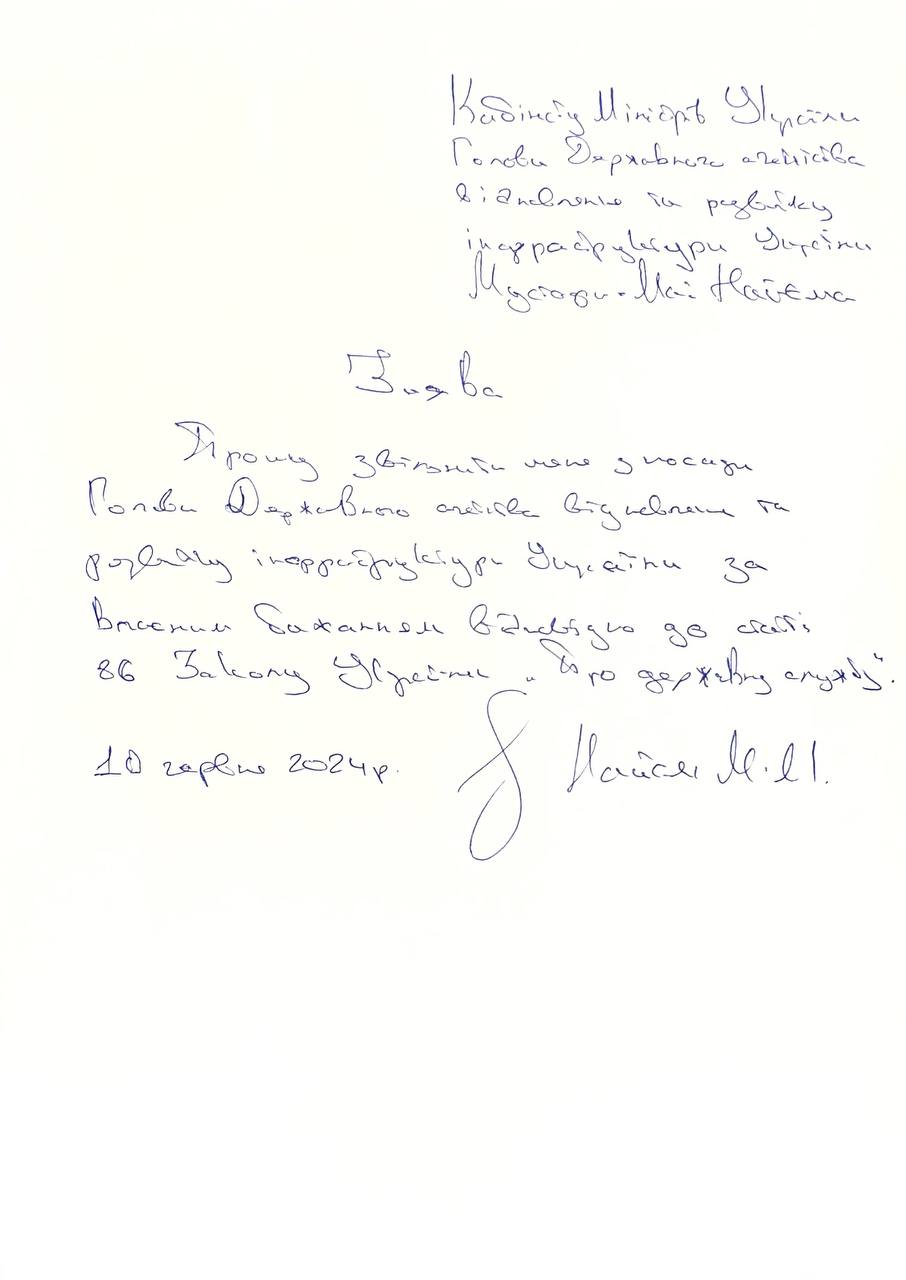 Кабінету Міністрів України
Голови Державного агентства
відновлення та розвитку
інфраструктури України
Мустафи-Масі Найєма
Заява
Прошу звільнити мене з посади
Голови Державного агентства відновлення та
розвитку інфраструктури України за
власним бажанням відповідно до статті
86 Закону України „Про державну службу".
10 червня 2024 р. Найєм М.М.